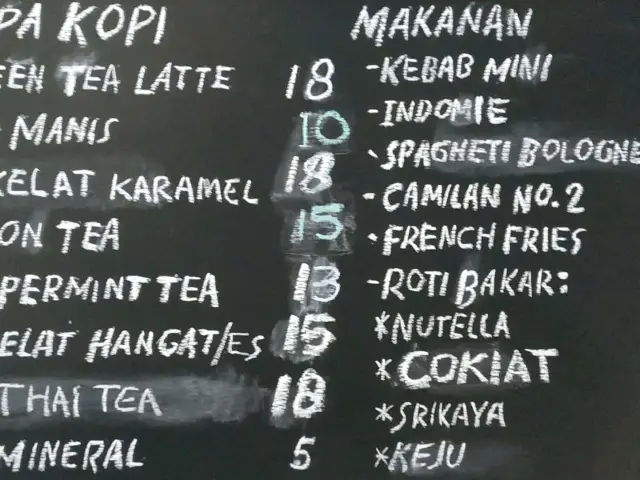 PA KOPI
EEN TEA LATTE 18
MANIS 10
KELAT KARAMEL 18
ON TEA 15
PERMINT TEA 13
ELAT HANGAT/ES 15
THAI TEA 18
MINERAL 5
MAKANAN
-KEBAB MINI
-INDOMIE
-SPAGHETI BOLOGNE
-CAMILAN NO.2
-FRENCH FRIES
-ROTI BAKAR:
*NUTELLA
*COKlAT
*SRIKAYA
*KEJU